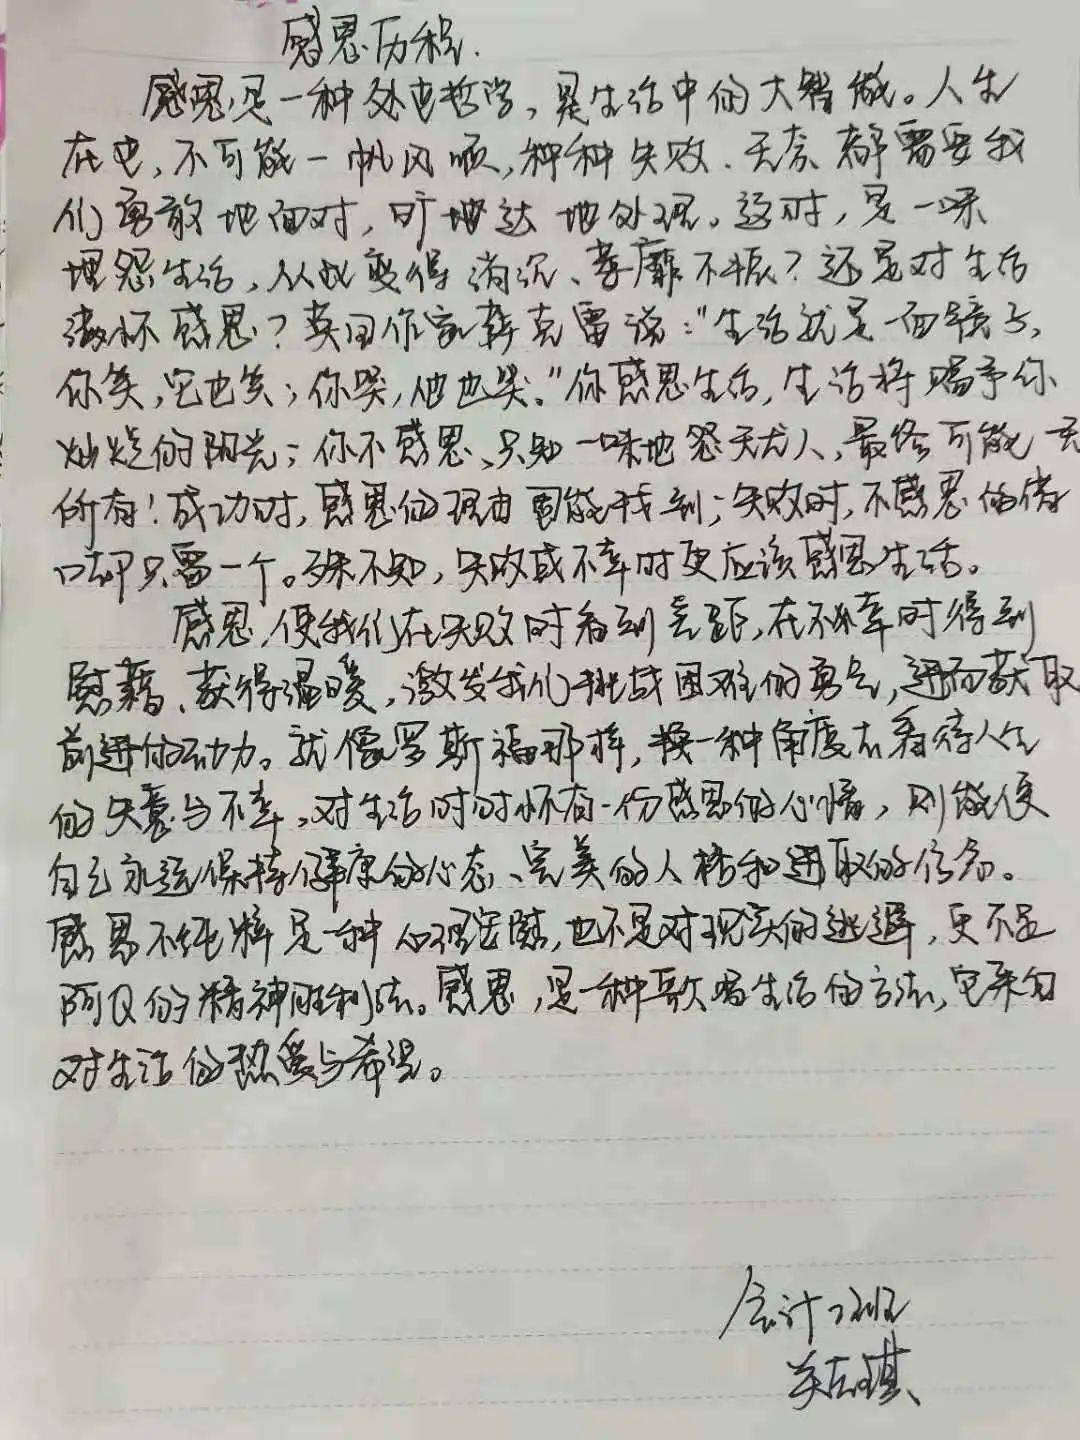 感恩历程.
感恩是一种处世哲学，是生活中的大智慧。人生
在世，不可能一帆风顺，种种失败、无奈都需要我
们勇敢地面对，旷地达地处理。这时，是一味
埋怨生活，从此变得消沉、萎靡不振？还是对生活
满怀感恩？英国作家萨克雷说："生活就是一面镜子，
你笑，它也笑；你哭，他也哭。"你感恩生活，生活将赐予你
灿烂的阳光；你不感恩、只知一味地怨天尤人，最终可能无
所有！成功时，感恩的理由固能找到；失败时，不感恩的借
口却只需一个。殊不知，失败或不幸时更应该感恩生活。
感恩，使我们在失败时看到差距，在不幸时得到
慰藉、获得温暖，激发我们挑战困难的勇气，进而获取
前进的动力。就像罗斯福那样，换一种角度去看待人生
的失意与不幸，对生活时时怀有一份感恩的心情，则能使
自己永远保持健康的心态、完美的人格和进取的信念。
感恩不纯粹是一种心理安慰，也不是对现实的逃避，更不是
阿Q的精神胜利法。感恩，是一种歌唱生活的方法，它来自
对生活的热爱与希望。
会计2班